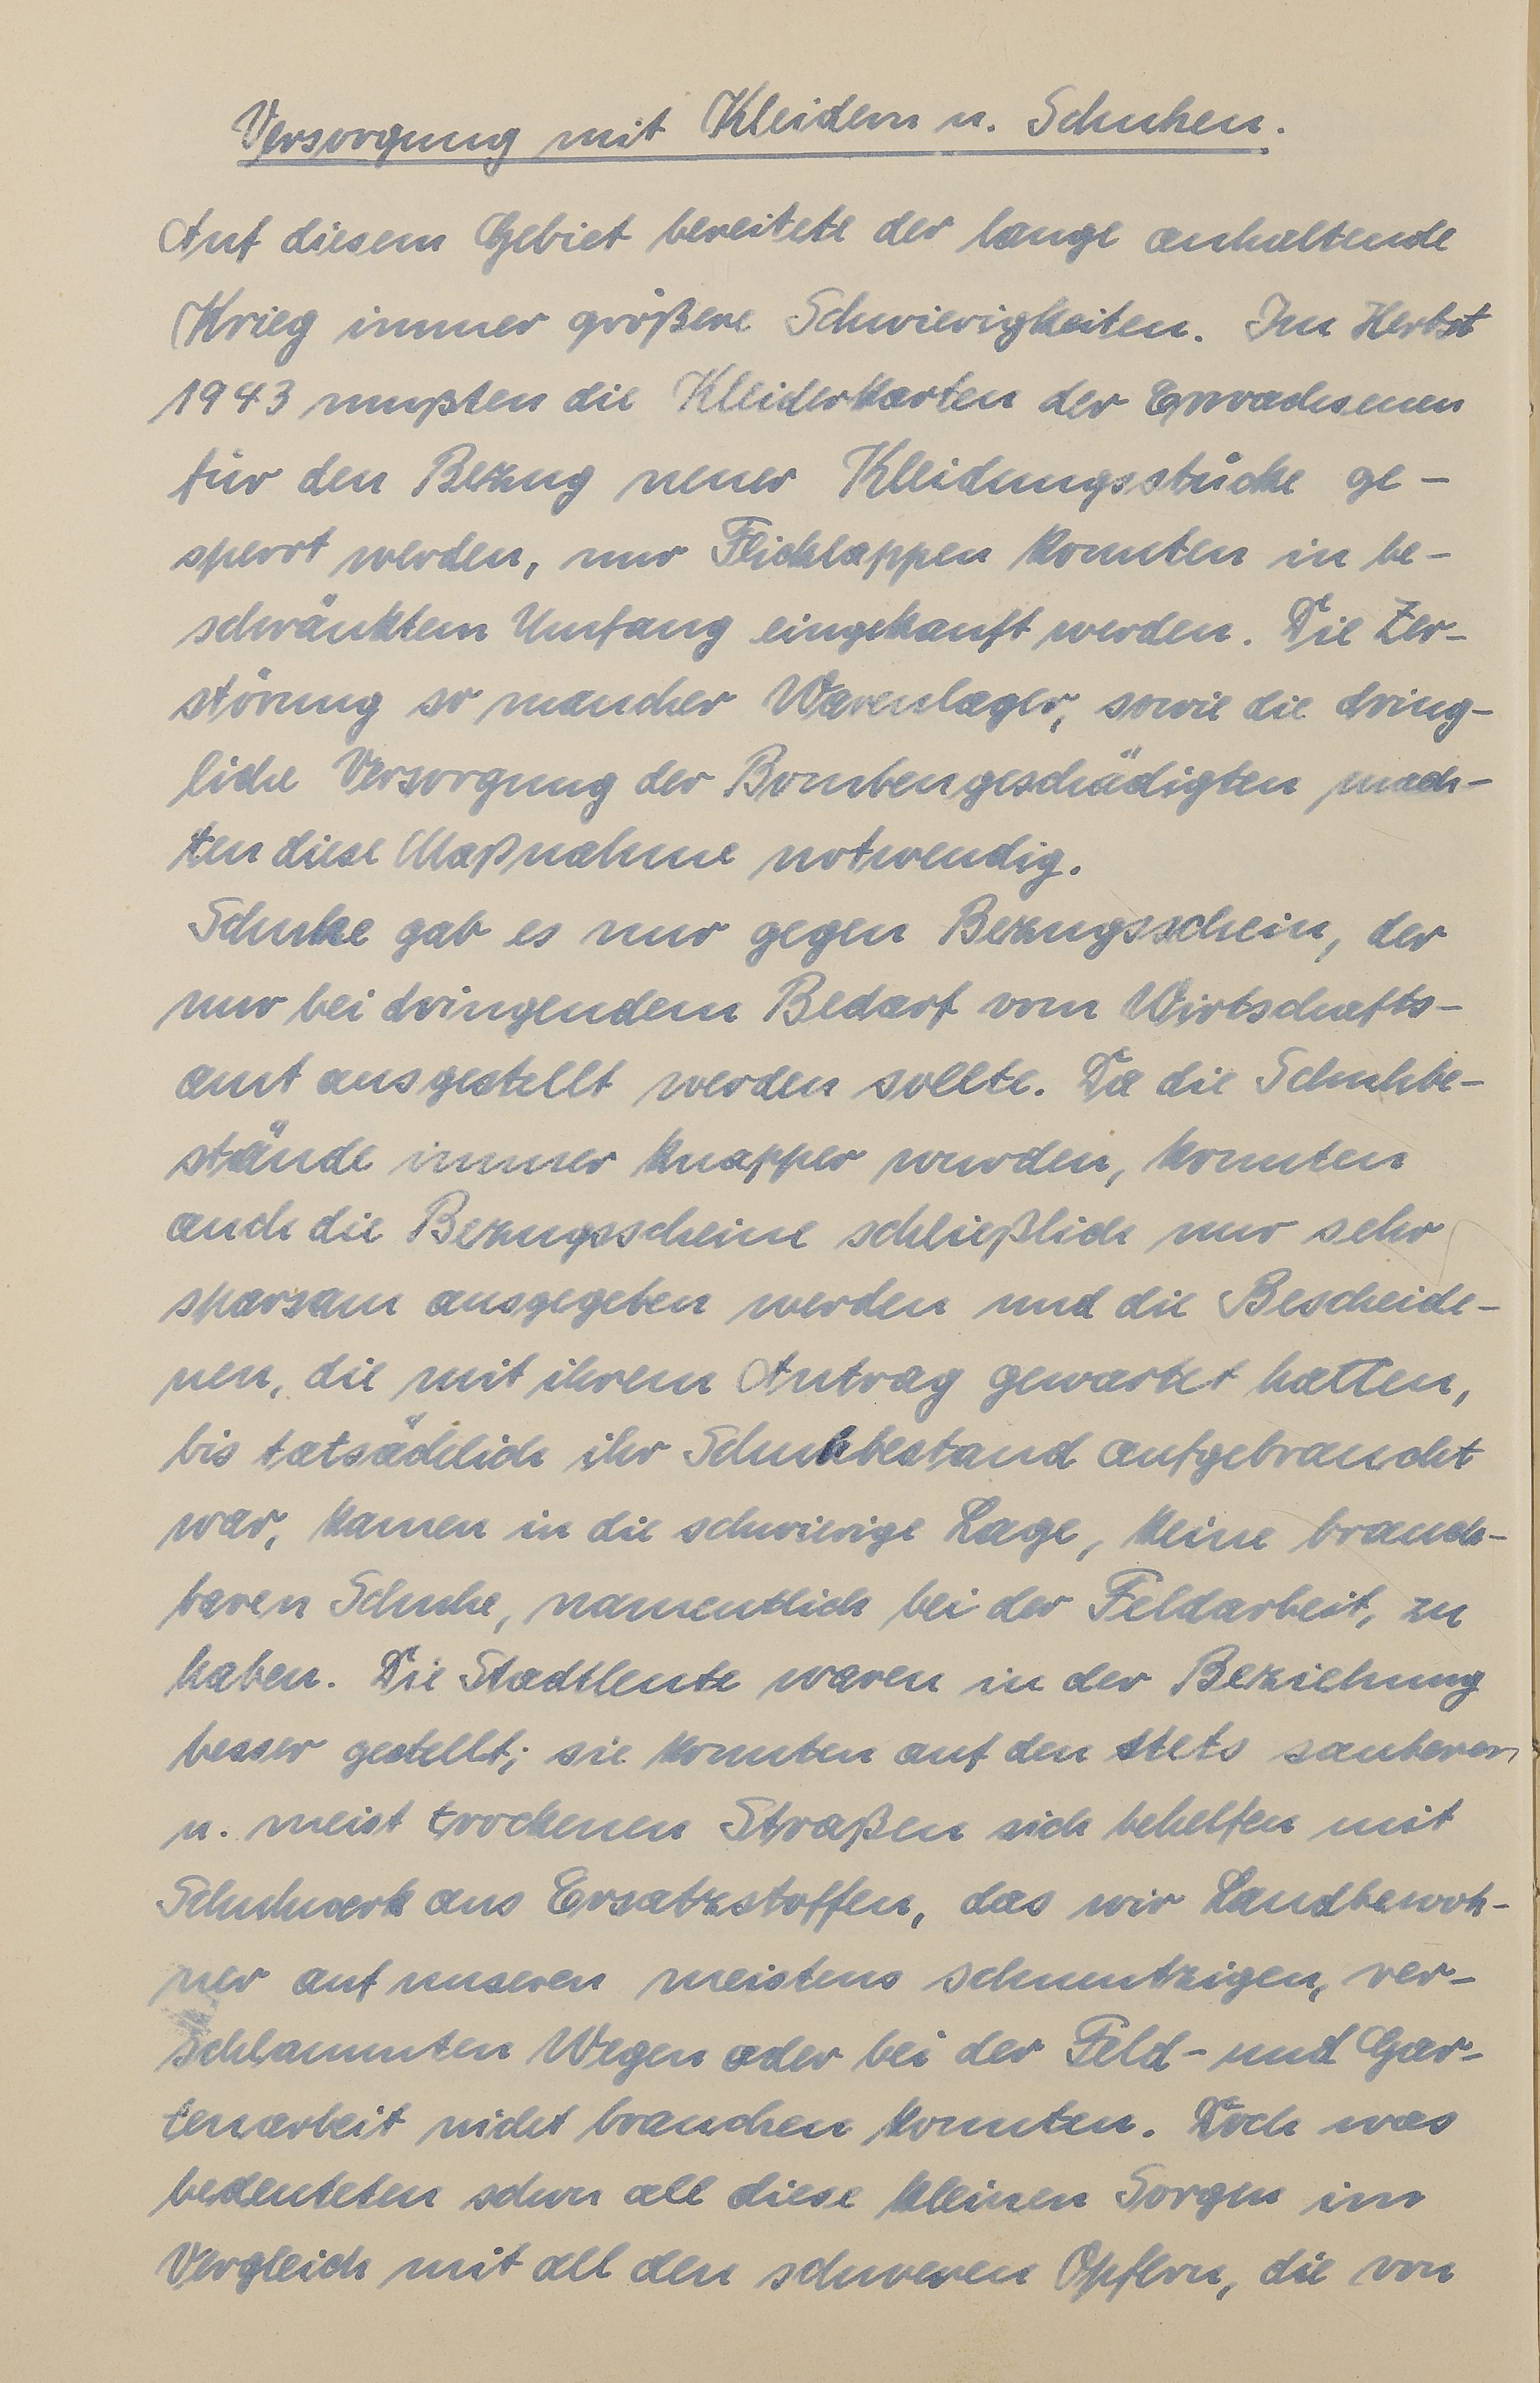 Versorgung mit Kleidern u. Schuhen.
Auf diesem Gebiet bereitete der lange anhaltende
Krieg immer größere Schwierigkeiten. Im Herbst
1943 mußten die Kleiderkarten der Erwachsenen
für den Bezug neuer Kleidungsstücke ge-
sperrt werden, nur Flicklappen konnten in be-
schränktem Umfang eingekauft werden. Die Zer-
störung so mancher Warenlager, sowie die dring-
liche Versorgung der Bombengeschädigten mach-
ten diese Maßnahme notwendig.
Schuhe gab es nur gegen Bezugsschein, der
nur bei dringendem Bedarf vom Wirtschafts-
amt ausgestellt werden sollte. Da die Schuhbe-
stände immer knapper wurden, konnten
auch die Bezugsscheine schließlich nur sehr
sparsam ausgegeben werden und die Bescheide-
nen, die mit ihrem Antrag gewartet hatten,
bis tatsächlich ihr Schuhbestand aufgebraucht
war, kamen in die schwierige Lage, keine brauch-
baren Schuhe, namentlich bei der Feldarbeit, zu
haben. Die Stadtleute waren in der Beziehung
besser gestellt; sie konnten auf den stets sauberen
u. meist trockenen Straßen sich behelfen mit
Schuhwerk aus Ersatzstoffen, das wir Landbewoh-
ner auf unseren meistens schmutzigen, ver-
schlammten Wegen oder bei der Feld- und Gar-
tenarbeit nicht brauchen konnten. Doch was
bedeuteten schon all diese kleinen Sorgen im
Vergleich mit all den schweren Opfern, die von